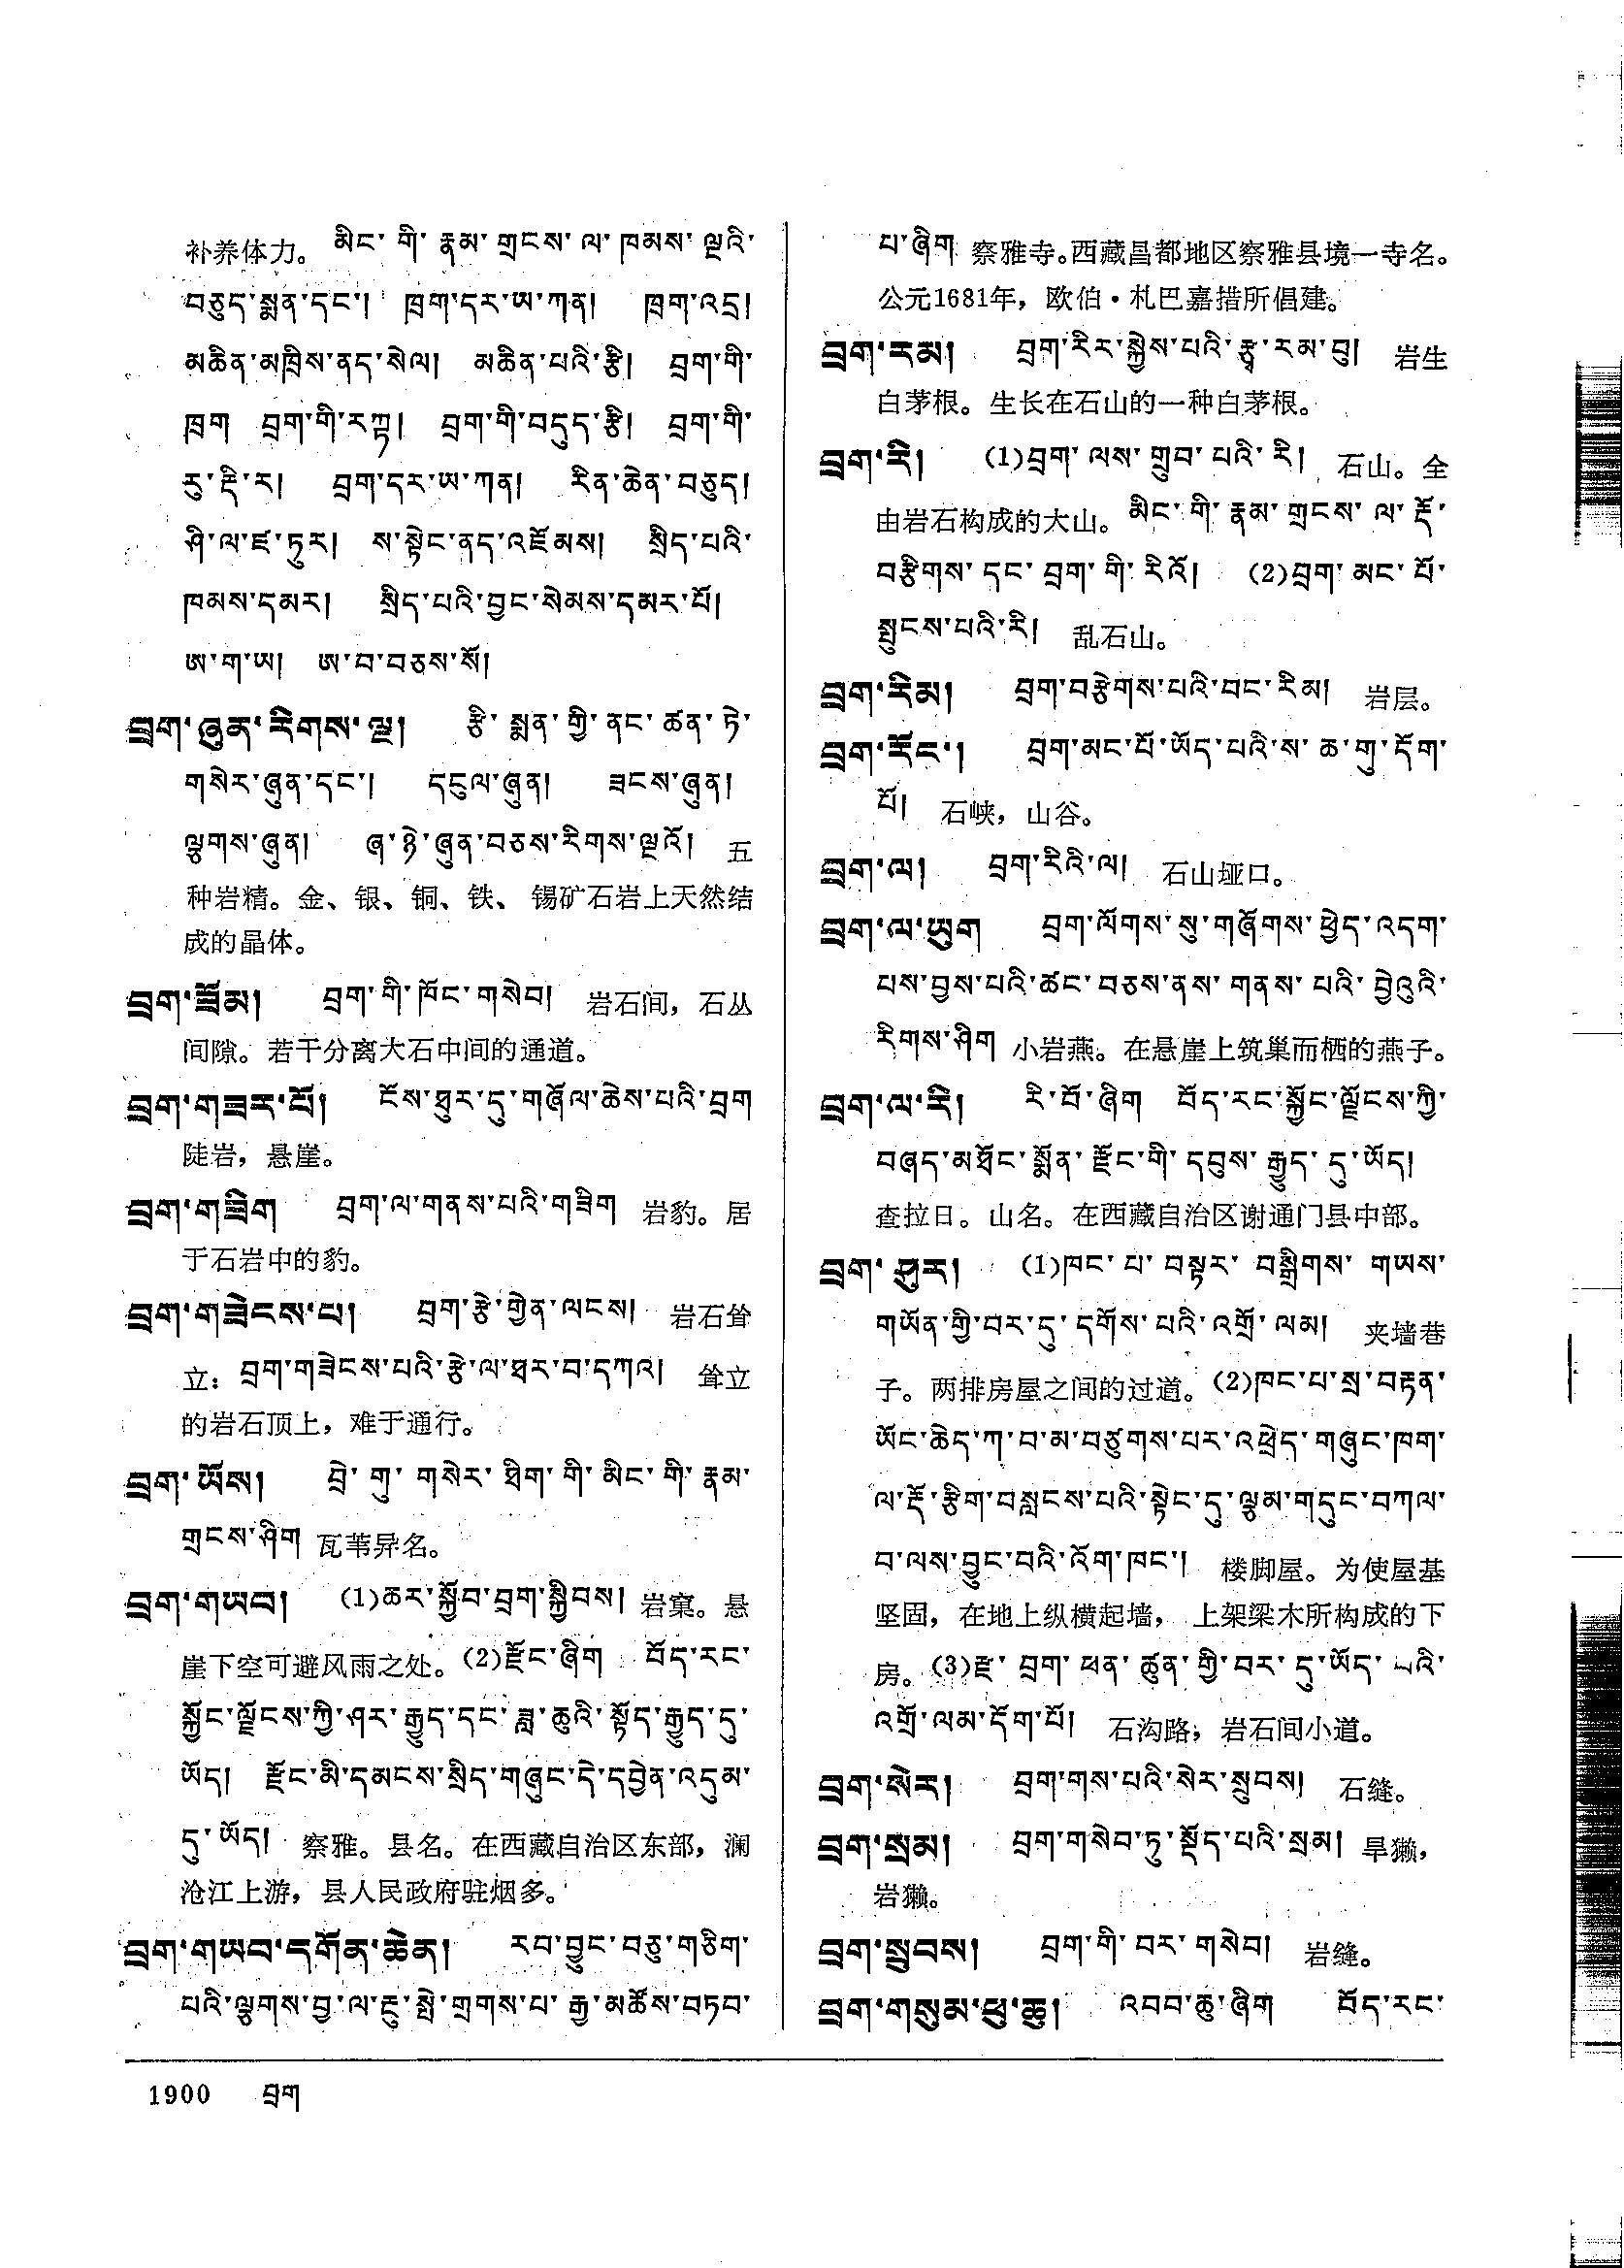 补养体力。 མིང་ གི་ རྣམ་ གྲངས་ ལ་ ཁམས་ ལྔའི་
བཅུད་སྨན་དང་། ཁྲག་དར་ཨ་ཀན། ཁྲག་འདྲ།
མཆིན་མཁྲིས་ནད་སེལ། མཆིན་པའི་རྩི། བྲག་གི་
ཁྲག བྲག་གི་རཀྟ། བྲག་གི་བདུད་རྩི། བྲག་གི་
རུ་རྡི་ར། བྲག་དར་ཨ་ཀན། རིན་ཆེན་བཅུད།
ཤི་ལ་ཛ་ཏུར། ས་སྟེང་ནད་འཇོམས། སྲིད་པའི་
ཁམས་དམར། སྲིད་པའི་བྱང་སེམས་དམར་པོ།
ཨ་ག་ཨ། ཨ་བ་བཅས་སོ།
བྲག་ཞུན་རིགས་ལྔ། རྩི་ སྨན་ གྱི་ ནང་ ཚན་ ཏེ་
གསེར་ཞུན་དང་། དངུལ་ཞུན། ཟངས་ཞུན།
ལྕགས་ཞུན། ཞ་ཉེ་ཞུན་བཅས་རིགས་ལྔའོ། 五
种岩精。金、银、铜、铁、锡矿石岩上天然结
成的晶体。
བྲག་ཟོམ། བྲག་གི་ཁོང་གསེབ། 岩石间，石丛
间隙。若干分离大石中间的通道。
བྲག་གཟར་པོ། ངོས་ཐུར་དུ་གཞོལ་ཆེས་པའི་བྲག
陡岩，悬崖。
བྲག་གཟིག བྲག་ལ་གནས་པའི་གཟིག 岩豹。居
于石岩中的豹。
བྲག་གཟེངས་པ། བྲག་རྩེ་གྱེན་ལངས། 岩石耸
立：བྲག་གཟེངས་པའི་རྩེ་ལ་ཐར་བ་དཀའ། 耸立
的岩石顶上，难于通行。
བྲག་ཡོས། བྲེ་ གུ་ གསེར་ ཐིག་ གི་ མིང་ གི་ རྣམ་
གྲངས་ཤིག 瓦苇异名。
བྲག་གཡབ། (1)ཆར་སྐྱོབ་བྲག་སྐྱིབས། 岩窠。悬
崖下空可避风雨之处。(2)རྫོང་ཞིག བོད་རང་
སྐྱོང་ལྗོངས་ཀྱི་ཤར་རྒྱུད་དང་ཟླ་ཆུའི་སྟོད་རྒྱུད་དུ་
ཡོད། རྫོང་མི་དམངས་སྲིད་གཞུང་དེ་དབྱེན་འདུམ་
དུ་ཡོད། 察雅。县名。在西藏自治区东部，澜
沧江上游，县人民政府驻烟多。
བྲག་གཡབ་དགོན་ཆེན། རབ་བྱུང་བཅུ་གཅིག་
པའི་ལྕགས་བྱ་ལ་ངུ་སྤེ་གྲགས་པ་རྒྱ་མཚོས་བཏབ་
པ་ཞིག 察雅寺。西藏昌都地区察雅县境一寺名。
公元1681年，欧伯·札巴嘉措所倡建。
བྲག་རམ། བྲག་རིར་སྐྱེས་པའི་རྩྭ་རམ་བུ། 岩生
白茅根。生长在石山的一种白茅根。
བྲག་རི། (1)བྲག་ ལས་ གྲུབ་ པའི་ རི། 石山。全
由岩石构成的大山。མིང་ གི་ རྣམ་ གྲངས་ ལ་ རྡོ་
བརྩིགས་ དང་ བྲག་ གི་ རིའོ། (2)བྲག་ མང་ པོ་
སྤུངས་པའི་རི། 乱石山。
བྲག་རིམ། བྲག་བརྩེགས་པའི་བང་རིམ། 岩层。
བྲག་རོང་། བྲག་མང་པོ་ཡོད་པའི་ས་ཆ་གུ་དོག་
པོ། 石峡，山谷。
བྲག་ལ། བྲག་རིའི་ལ། 石山垭口。
བྲག་ལ་ཡུག བྲག་ལོགས་སུ་གཤོགས་ཕྱེད་འདག་
པས་བྱས་པའི་ཚང་བཅས་ནས་ གནས་ པའི་ བྱེའུའི་
རིགས་ཤིག 小岩燕。在悬崖上筑巢而栖的燕子。
བྲག་ལ་རི། རི་བོ་ཞིག བོད་རང་སྐྱོང་ལྗོངས་ཀྱི་
བཞད་མཐོང་སྨོན་ རྫོང་གི་ དབུས་ རྒྱུད་ དུ་ཡོད།
查拉日。山名。在西藏自治区谢通门县中部。
བྲག་ཤུར། (1)ཁང་ པ་ བསྟར་ བསྒྲིགས་ གཡས་
གཡོན་གྱི་བར་དུ་ དགོས་ པའི་ འགྲོ་ ལམ། 夹墙巷
子。两排房屋之间的过道。(2)ཁང་པ་སྲ་བརྟན་
ཡོང་ཆེད་ཀ་བ་མ་བཙུགས་པར་འཕྲེད་གཞུང་ཁག་
ལ་རྡོ་རྩིག་བསླངས་པའི་སྟེང་དུ་ལྕམ་གདུང་བཀལ་
བ་ལས་བྱུང་བའི་འོག་ཁང་། 楼脚屋。为使屋基
坚固，在地上纵横起墙，上架梁木所构成的下
房。(3)རྫ་ བྲག་ ཕན་ ཚུན་ གྱི་ བར་ དུ་ ཡོད་ པའི་
འགྲོ་ལམ་དོག་པོ། 石沟路；岩石间小道。
བྲག་སེར། བྲག་གས་པའི་སེར་སྲུབས། 石缝。
བྲག་སྲམ། བྲག་གསེབ་ཏུ་སྡོད་པའི་སྲམ། 旱獭，
岩獭。
བྲག་སྲུབས། བྲག་གི་ བར་ གསེབ། 岩缝。
བྲག་གསུམ་ཕུ་ཆུ། འབབ་ཆུ་ཞིག བོད་རང་
1900 བྲག